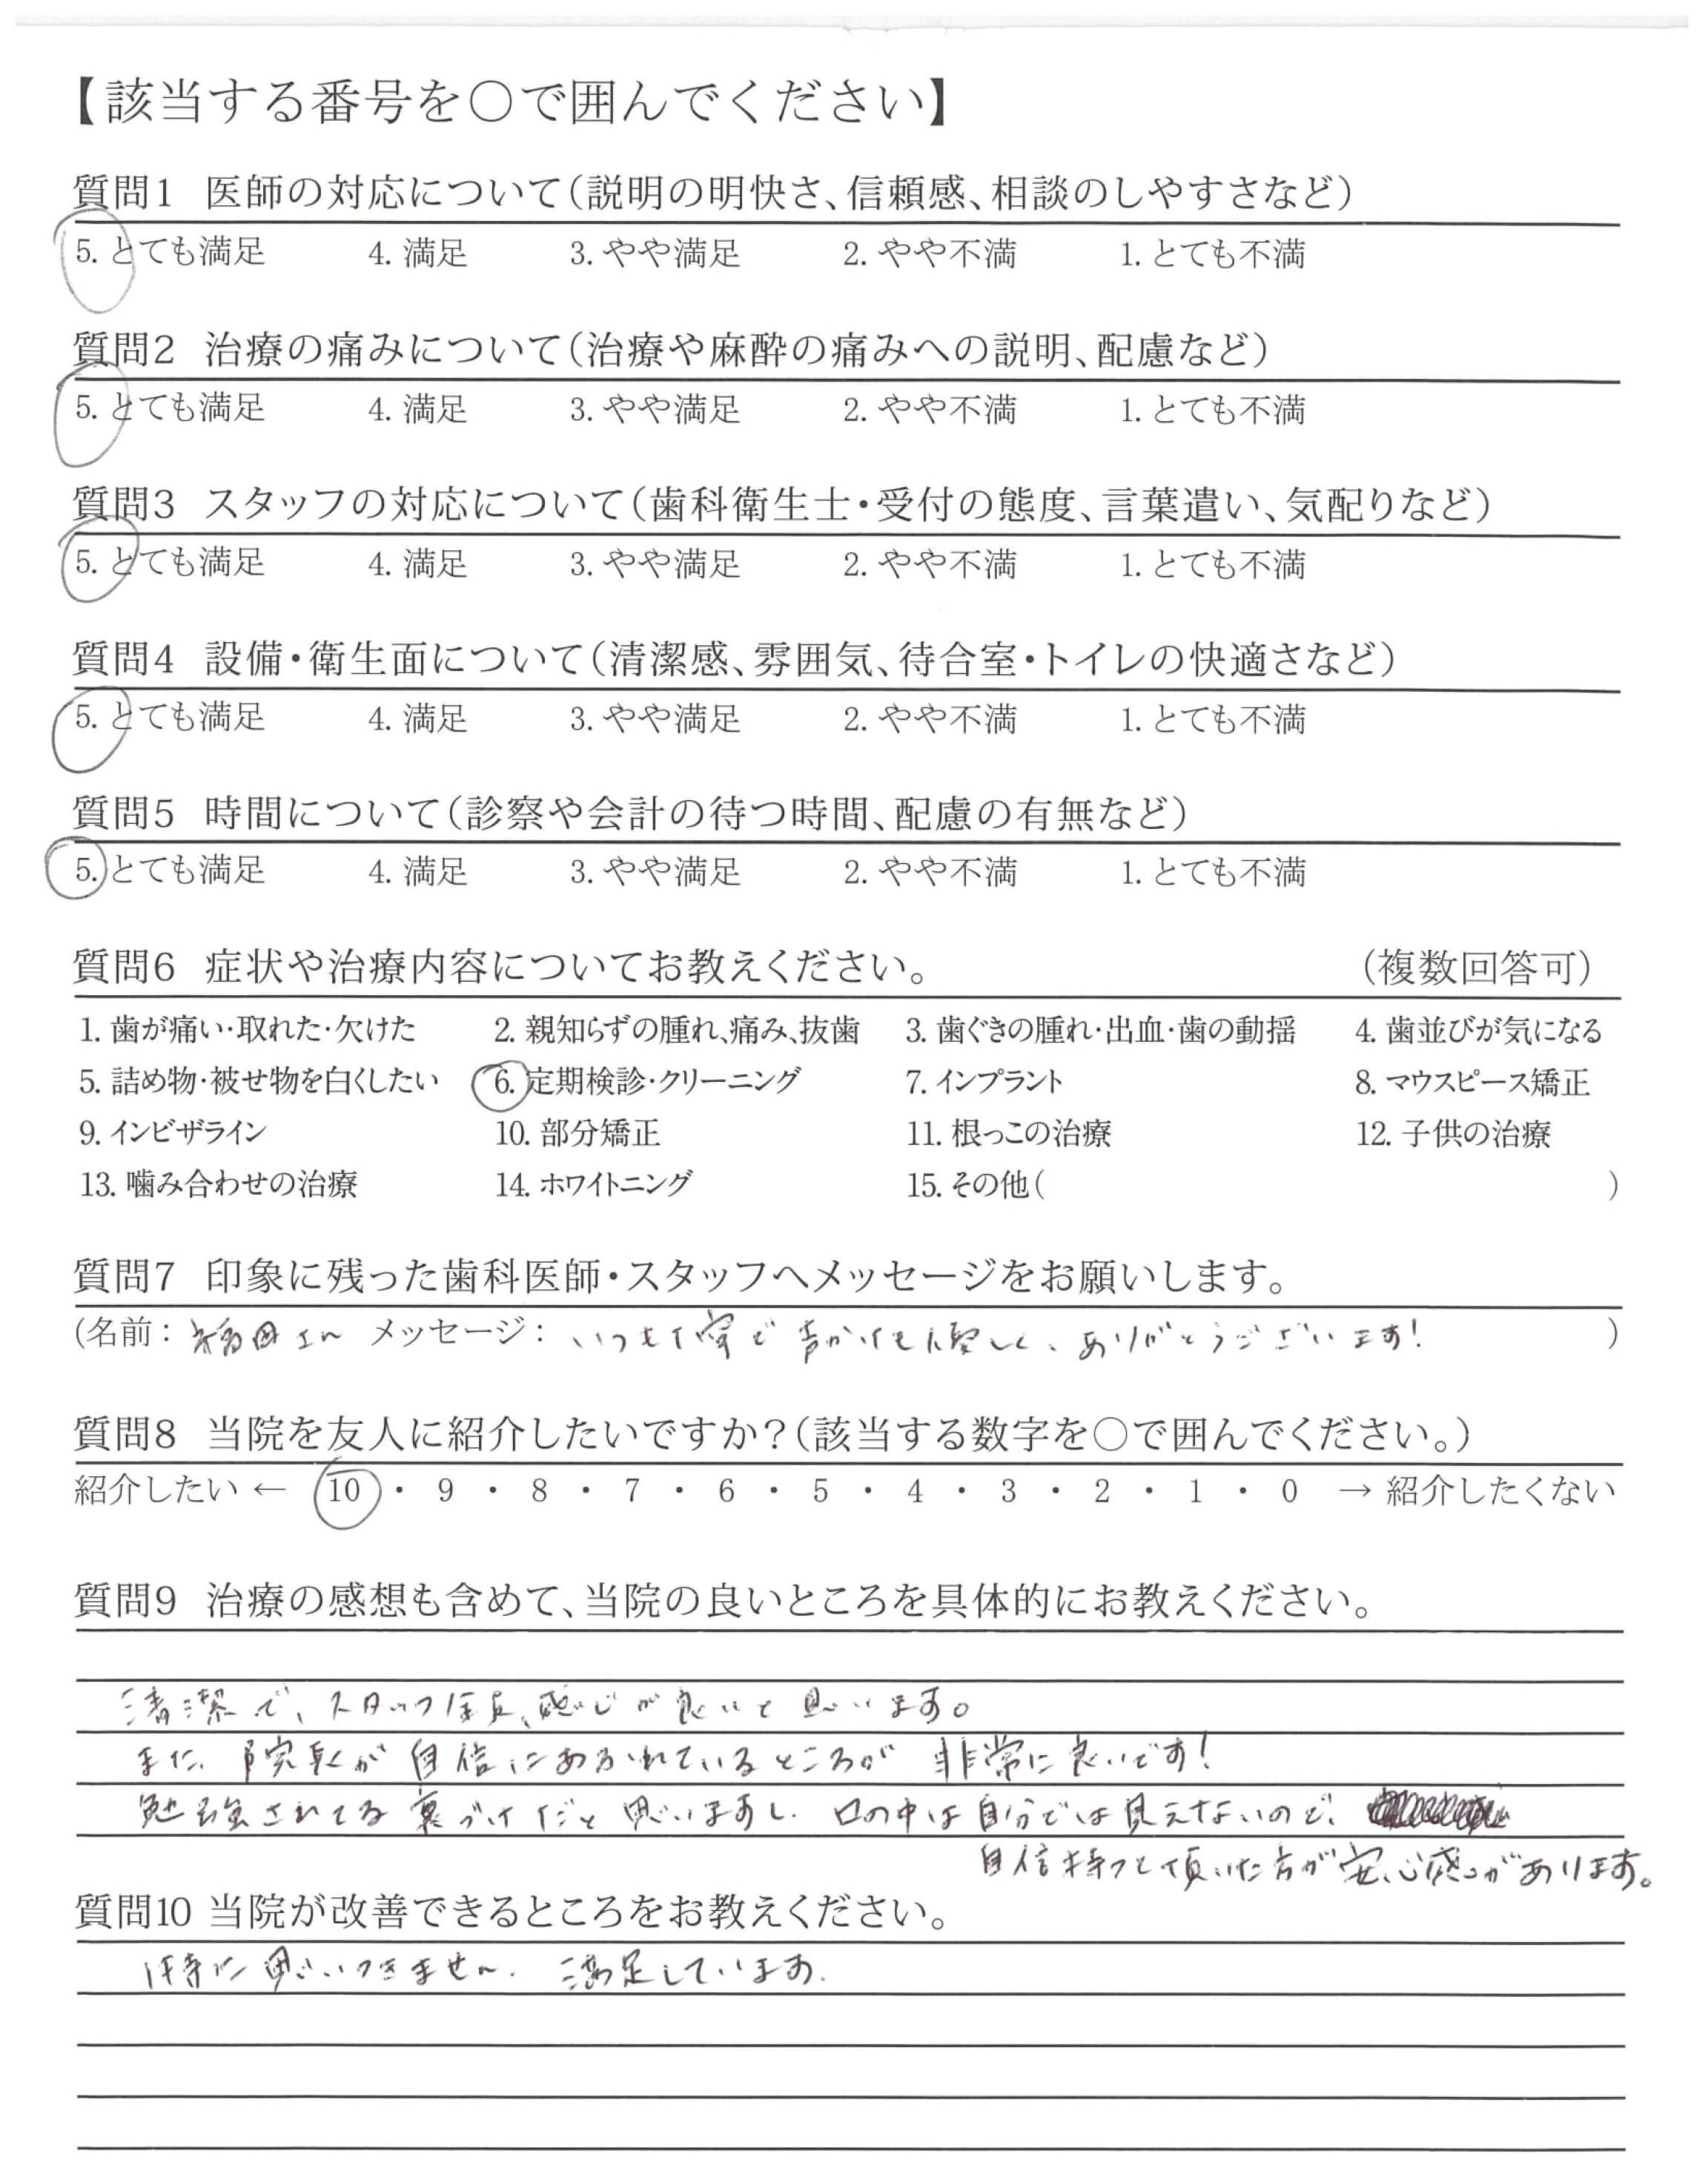 【該当する番号を○で囲んでください】
質問1 医師の対応について(説明の明快さ、信頼感、相談のしやすさなど)
5. とても満足 4. 満足 3. やや満足 2. やや不満 1. とても不満
質問2 治療の痛みについて(治療や麻酔の痛みへの説明、配慮など)
5. とても満足 4. 満足 3. やや満足 2. やや不満 1. とても不満
質問3 スタッフの対応について(歯科衛生士・受付の態度、言葉遣い、気配りなど)
5. とても満足 4. 満足 3. やや満足 2. やや不満 1. とても不満
質問4 設備・衛生面について(清潔感、雰囲気、待合室・トイレの快適さなど)
5. とても満足 4. 満足 3. やや満足 2. やや不満 1. とても不満
質問5 時間について(診察や会計の待つ時間、配慮の有無など)
5. とても満足 4. 満足 3. やや満足 2. やや不満 1. とても不満
質問6 症状や治療内容についてお教えください。 (複数回答可)
1. 歯が痛い・取れた・欠けた 2. 親知らずの腫れ、痛み、抜歯 3. 歯ぐきの腫れ・出血・歯の動揺 4. 歯並びが気になる
5. 詰め物・被せ物を白くしたい 6. 定期検診・クリーニング 7. インプラント 8. マウスピース矯正
9. インビザライン 10. 部分矯正 11. 根っこの治療 12. 子供の治療
13. 噛み合わせの治療 14. ホワイトニング 15. その他( )
質問7 印象に残った歯科医師・スタッフへメッセージをお願いします。
(名前: 福田さん メッセージ: いつも丁寧で声かけも優しく、ありがとうございます! )
質問8 当院を友人に紹介したいですか?(該当する数字を○で囲んでください。)
紹介したい ← 10 ・ 9 ・ 8 ・ 7 ・ 6 ・ 5 ・ 4 ・ 3 ・ 2 ・ 1 ・ 0 → 紹介したくない
質問9 治療の感想も含めて、当院の良いところを具体的にお教えください。
清潔で、スタッフ全員、感じが良いと思います。
また、院長が自信にあふれているところが非常に良いです!
勉強されてる裏づけだと思いますし、口の中は自分では見えないので、
自信持って頂いた方が安心感があります。
質問10 当院が改善できるところをお教えください。
特に思いつきません。満足しています。